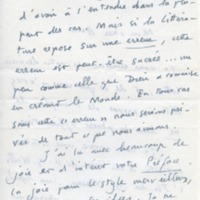 d'avoir à s'entendre dans la plu-
part des cas. Mais si la littéra-
ture repose sur une erreur, cette
erreur est peut-être sacrée... un
peu comme celle que Dieu a commise
en créant le Monde. En tous cas
sans cette erreur nous serions pri-
vés de tout ce que nous aimons.
J'ai lu avec beaucoup de
joie et d'intérêt votre Préface
(la joie pour le style merveilleux,
Je ne